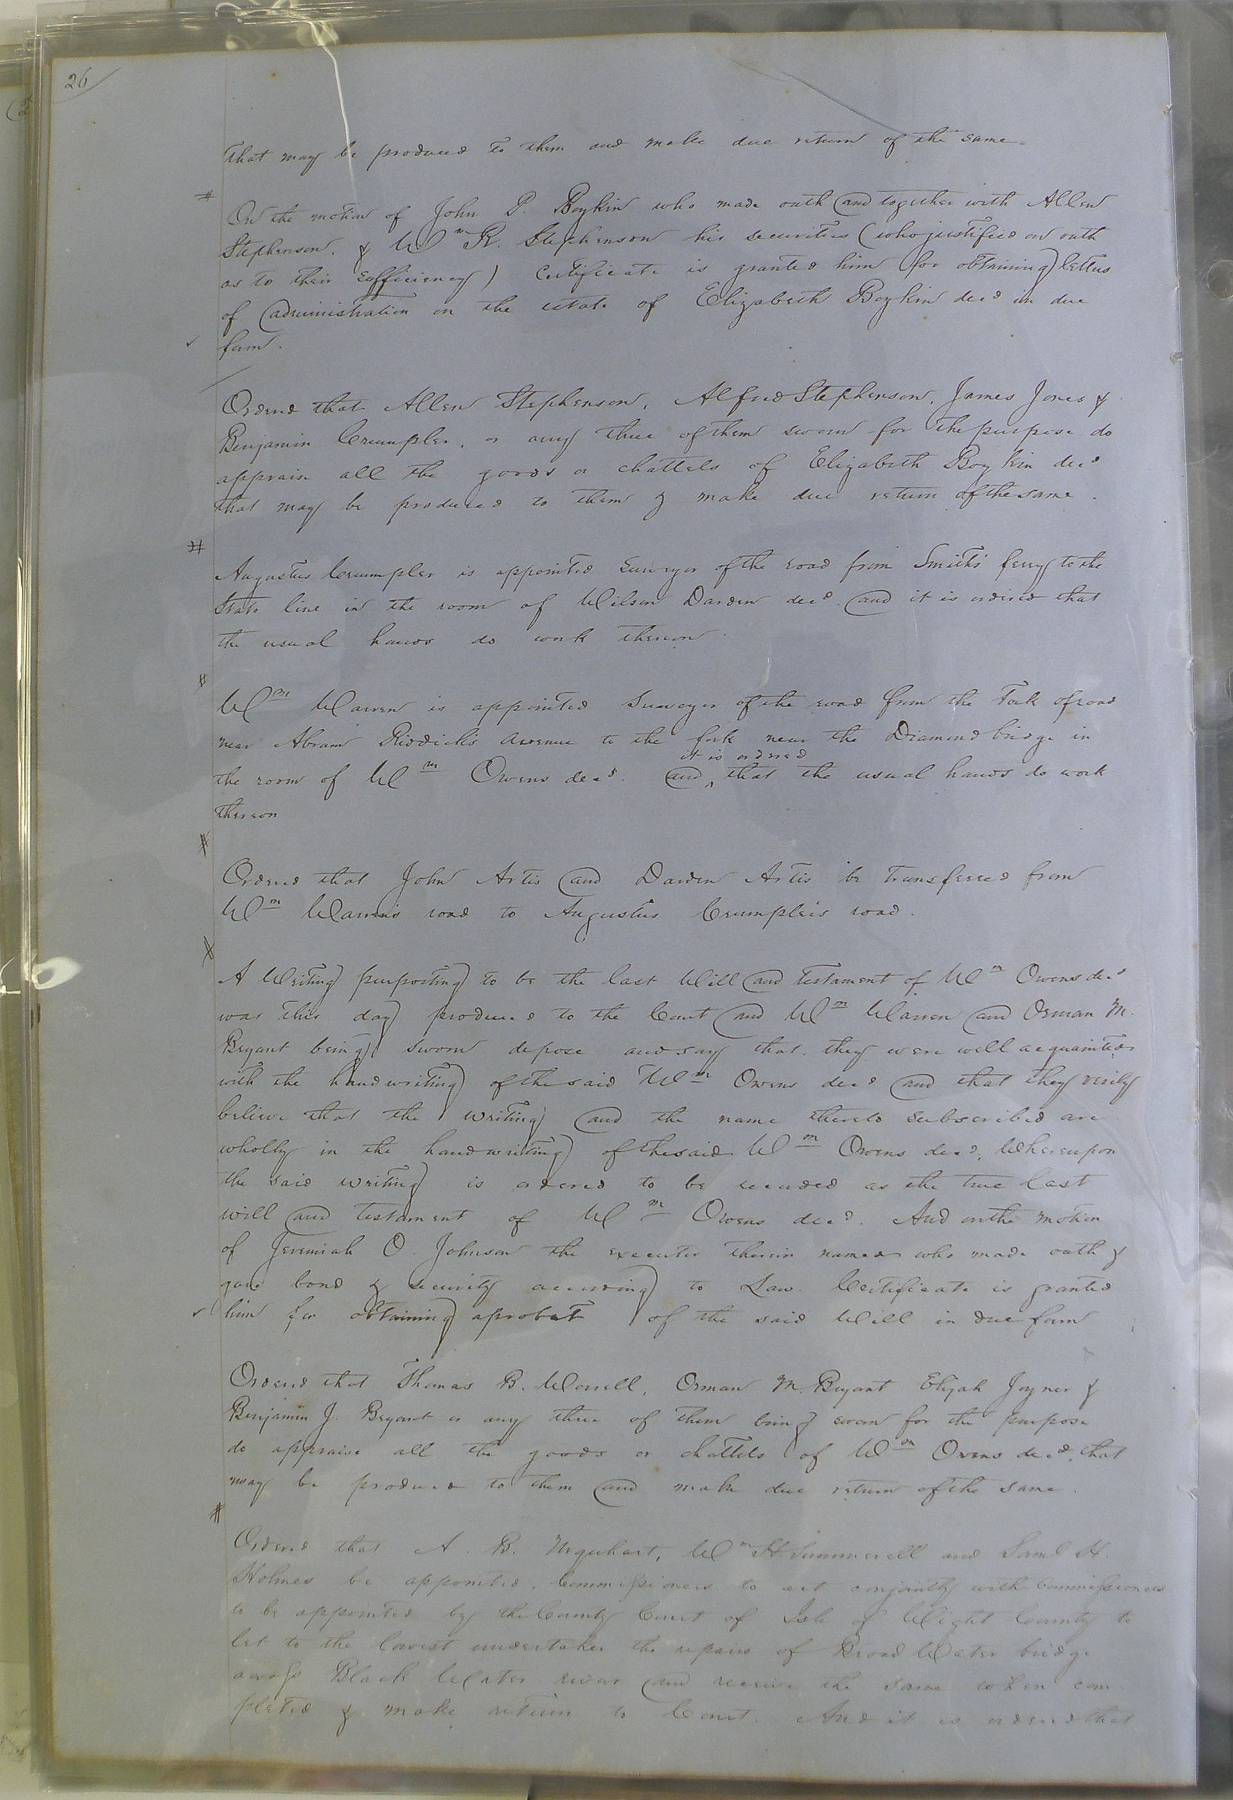 26
that may be produced to them and make due return of the same.
On the motion of John P. Boykin who made oath and together with Allen
Stephenson, & Wm R. Stephenson his securities (who justified on oath
as to their sufficiency) Certificate is granted him for obtaining letters
of administration on the estate of Elizabeth Boykin decd in due
form.
Ordered that Allen Stephenson, Alfred Stephenson, James Jones &
Benjamin Crumpler, or any three of them sworn for the purpose do
appraise all the goods or chattels of Elizabeth Boykin decd
that may be produced to them & make due return of the same.
Augustus Crumpler is appointed Surveyor of the road from Smith's ferry to the
State line in the room of Wilson Darden decd. and it is ordered that
the usual hands do work thereon.
Wm Warren is appointed Surveyor of the road from the Fork of road
near Abram Riddick's avenue to the fork near the Diamond bridge in
it is ordered
the room of Wm Owens decd. and that the usual hands do work
thereon
Ordered that John Artis and Darden Artis be transferred from
Wm Warren's road to Augustus Crumpler's road.
A Writing purporting to be the last Will and testament of Wm Owens decd
was this day produced to the Court and Wm Warren and Orman M.
Bryant being sworn depose and say that they were well acquainted
with the handwriting of the said Wm Owens decd and that they verily
believe that the writing and the name thereto subscribed are
wholly in the handwriting of the said Wm Owens decd, Whereupon
the said writing is ordered to be recorded as the true last
will and testament of Wm Owens decd. And on the motion
of Jeremiah O. Johnson the executor therein named who made oath &
gave bond & security according to Law. Certificate is granted
him for obtaining a probat of the said Will in due form
Ordered that Thomas B. Worrell, Orman M. Bryant Elijah Joyner &
Benjamin J. Bryant or any three of them being sworn for the purpose
do appraise all the goods or chattels of Wm Owens decd, that
may be produced to them and make due return of the same.
Ordered that A. B. Urquhart, Wm H Summerell and Saml H.
Holmes be appointed, Commissioners to act conjointly with Commissioners
to be appointed by the County Court of Isle of Wight County to
let to the lowest undertaker the repairs of Broad Water bridge
across Black Water river and receive the same when com
pleted & make return to Court. And it is ordered that